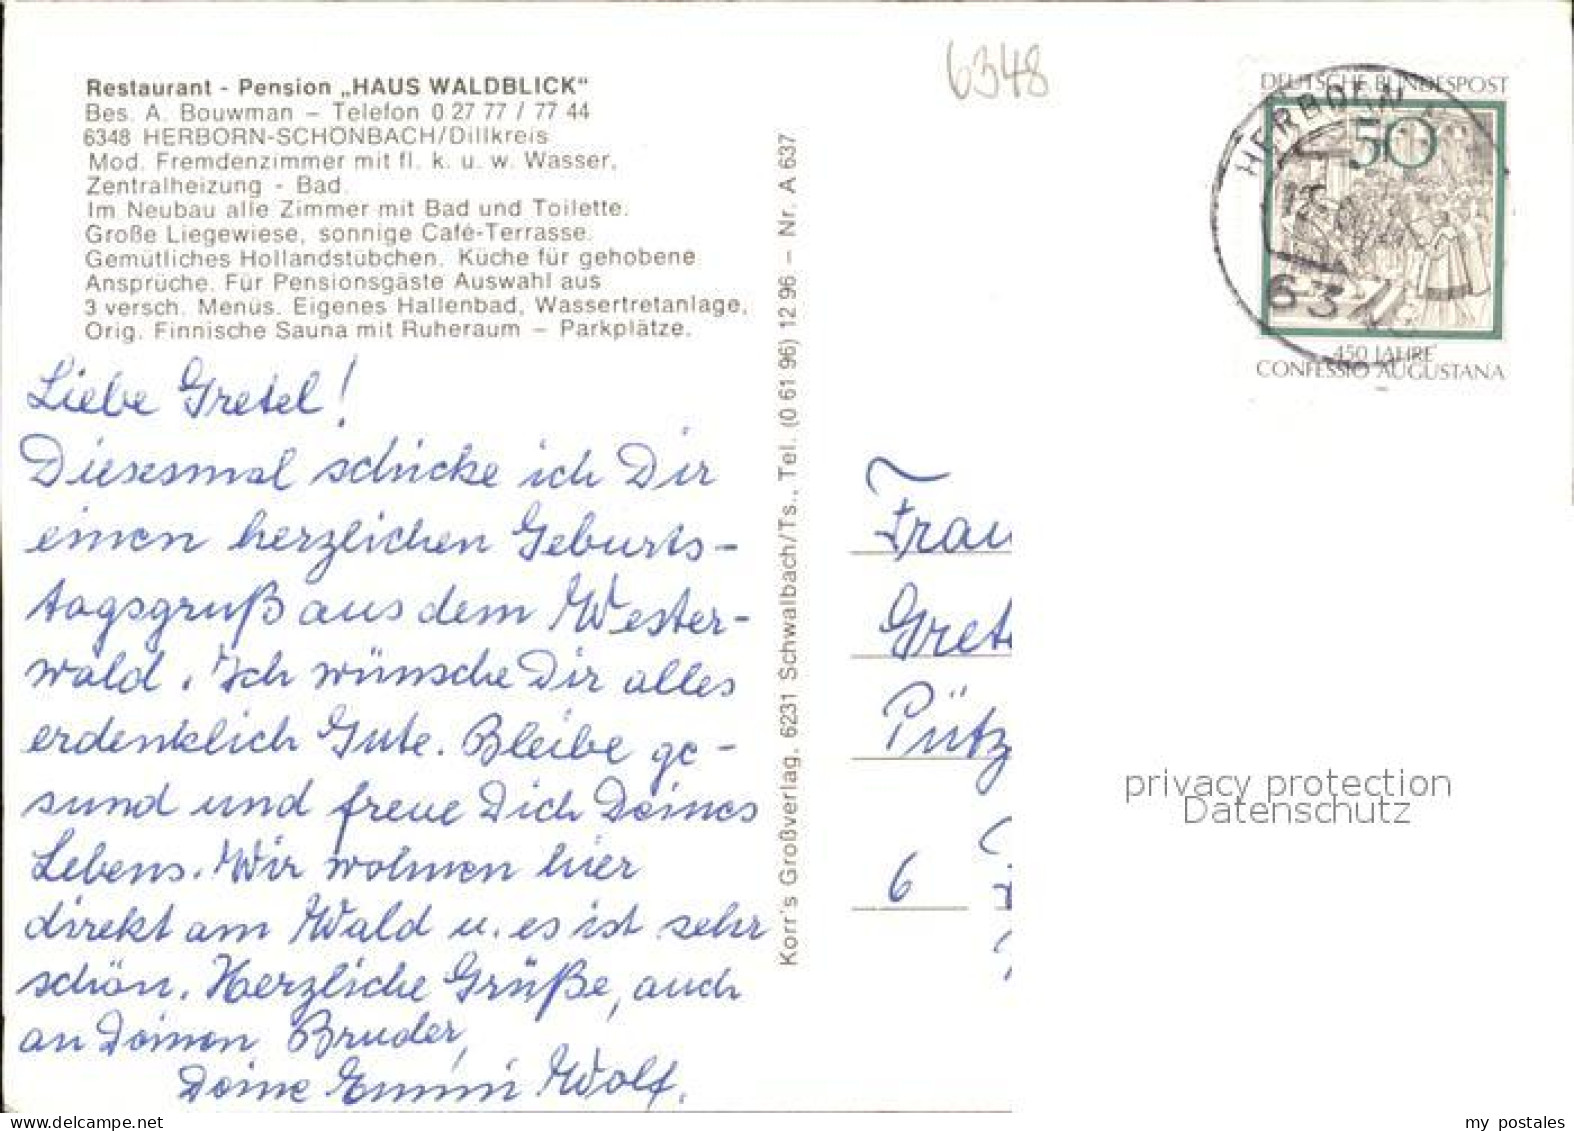 6348
Restaurant - Pension „HAUS WALDBLICK“
Bes. A. Bouwman – Telefon 0 27 77 / 77 44
6348 HERBORN-SCHÖNBACH/Dillkreis
Mod. Fremdenzimmer mit fl. k. u. w. Wasser,
Zentralheizung - Bad.
Im Neubau alle Zimmer mit Bad und Toilette.
Große Liegewiese, sonnige Café-Terrasse.
Gemütliches Hollandstübchen. Küche für gehobene
Ansprüche. Für Pensionsgäste Auswahl aus
3 versch. Menüs. Eigenes Hallenbad, Wassertretanlage,
Orig. Finnische Sauna mit Ruheraum – Parkplätze.
Liebe Gretel!
Diesesmal schicke ich Dir
einen herzlichen Geburts-
tagsgruß aus dem Wester-
wald. Ich wünsche Dir alles
erdenklich Gute. Bleibe ge-
sund und freue Dich Deines
Lebens. Wir wohnen hier
direkt am Wald u. es ist sehr
schön. Herzliche Grüße, auch
an Deinen Bruder,
Deine Emmi Wolf.
Korr's Großverlag, 6231 Schwalbach/Ts., Tel. (0 61 96) 12 96 – Nr. A 637
DEUTSCHE BUNDESPOST
50
450 JAHRE
CONFESSIO AUGUSTANA
HERBORN
634
Frau
Grete
Pütz
6
privacy protection
Datenschutz
my postales